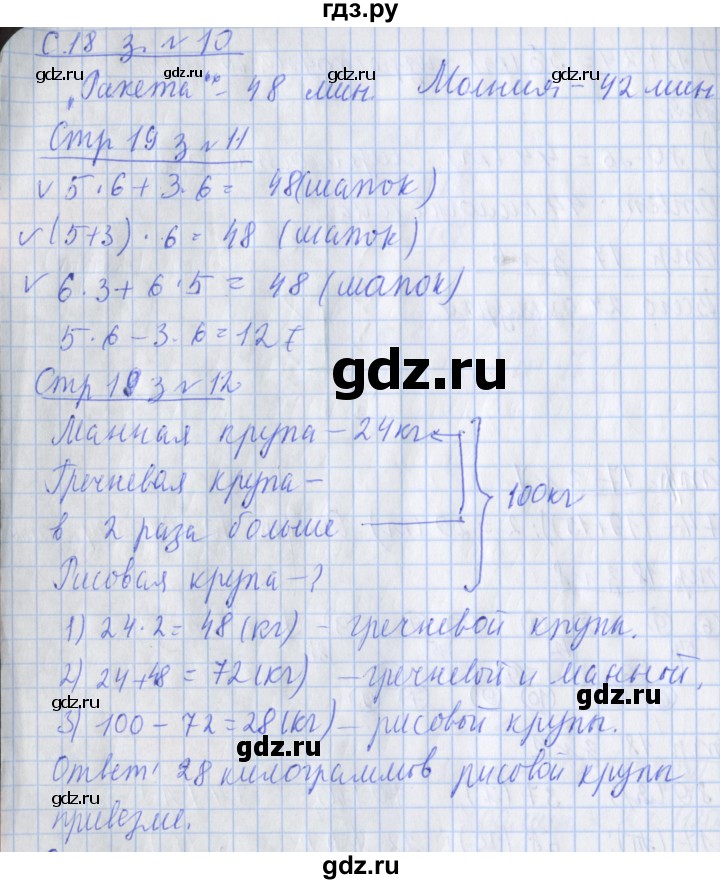 гдз.ру
С.18 з. №10
„Ракета" - 48 мин. Молния - 42 мин
Стр 19 з №11
√ 5·6+3·6= 48(шапок)
√ (5+3)·6=48 (шапок)
√ 6·3+6·5=48(шапок)
5·6-3·6=12
gdz.ru
Стр 18 з №12
Манная крупа - 24кг
Гречневая крупа -
в 2 раза больше
100кг
Рисовая крупа - ?
1) 24·2=48(кг) - гречневой крупы.
2) 24+48=72(кг) - гречневой и манной.
3) 100-72=28(кг) - рисовой крупы.
Ответ: 28 килограммов рисовой крупы
привезли.
gdz.ru